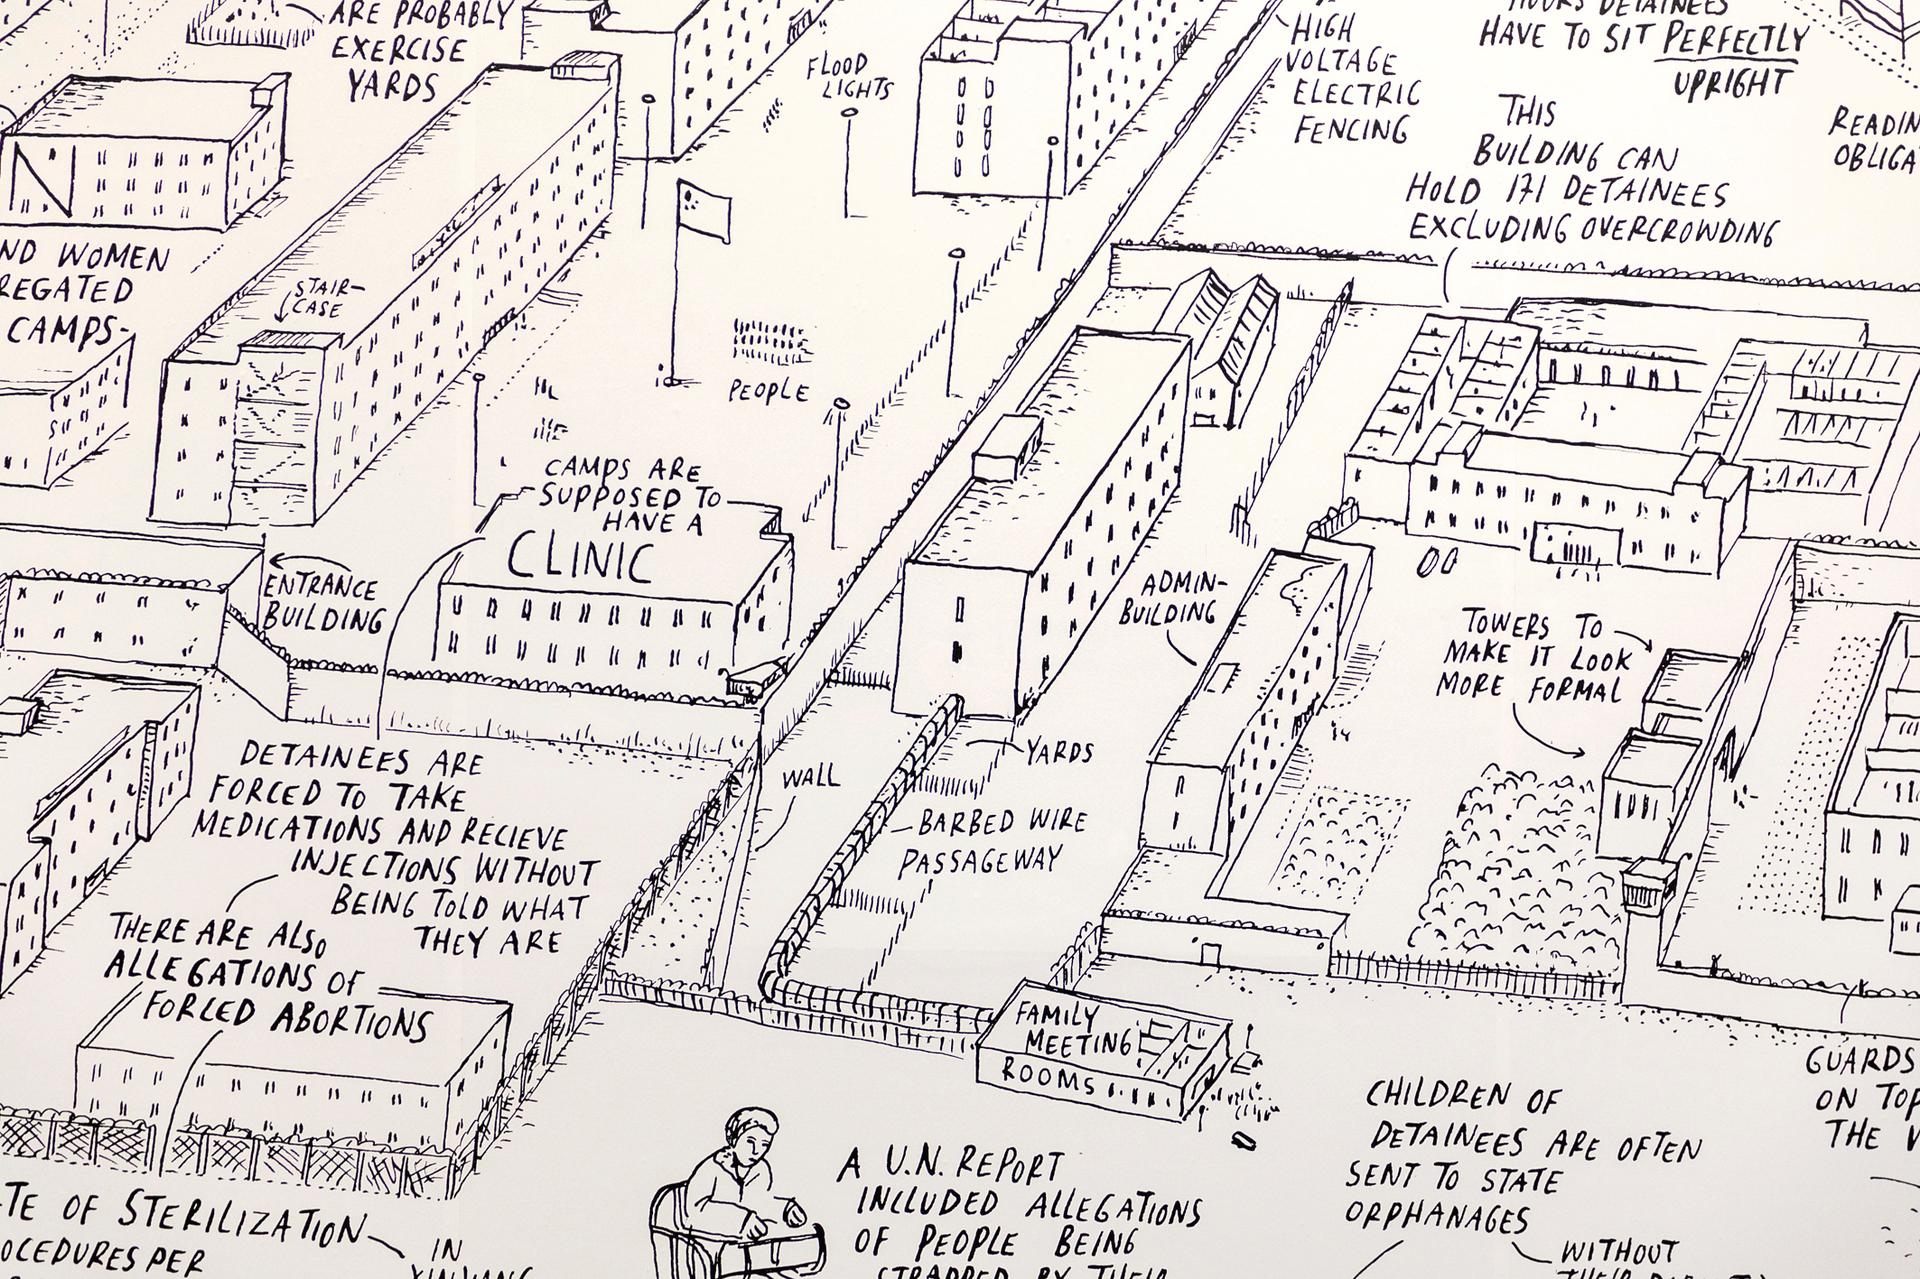 ARE PROBABLY
EXERCISE
YARDS
FLOOD
LIGHTS
HIGH
VOLTAGE
ELECTRIC
FENCING
HOURS DETAINEES
HAVE TO SIT PERFECTLY
UPRIGHT
THIS
BUILDING CAN
HOLD 171 DETAINEES
EXCLUDING OVERCROWDING
READIN
OBLIGA
ND WOMEN
REGATED
CAMPS-
STAIR-
CASE
PEOPLE
CAMPS ARE
SUPPOSED TO
HAVE A
CLINIC
ENTRANCE
BUILDING
ADMIN-
BUILDING
TOWERS TO
MAKE IT LOOK
MORE FORMAL
DETAINEES ARE
FORCED TO TAKE
MEDICATIONS AND RECIEVE
INJECTIONS WITHOUT
BEING TOLD WHAT
THEY ARE
WALL
YARDS
BARBED WIRE
PASSAGEWAY
THERE ARE ALSO
ALLEGATIONS OF
FORCED ABORTIONS
FAMILY
MEETING
ROOMS
GUARDS
ON TOP
THE
CHILDREN OF
DETAINEES ARE OFTEN
SENT TO STATE
ORPHANAGES
WITHOUT
A U.N. REPORT
INCLUDED ALLEGATIONS
OF PEOPLE BEING
STRAPPED BY THEIR
TE OF STERILIZATION
OCEDURES PER
IN
XINJIANG